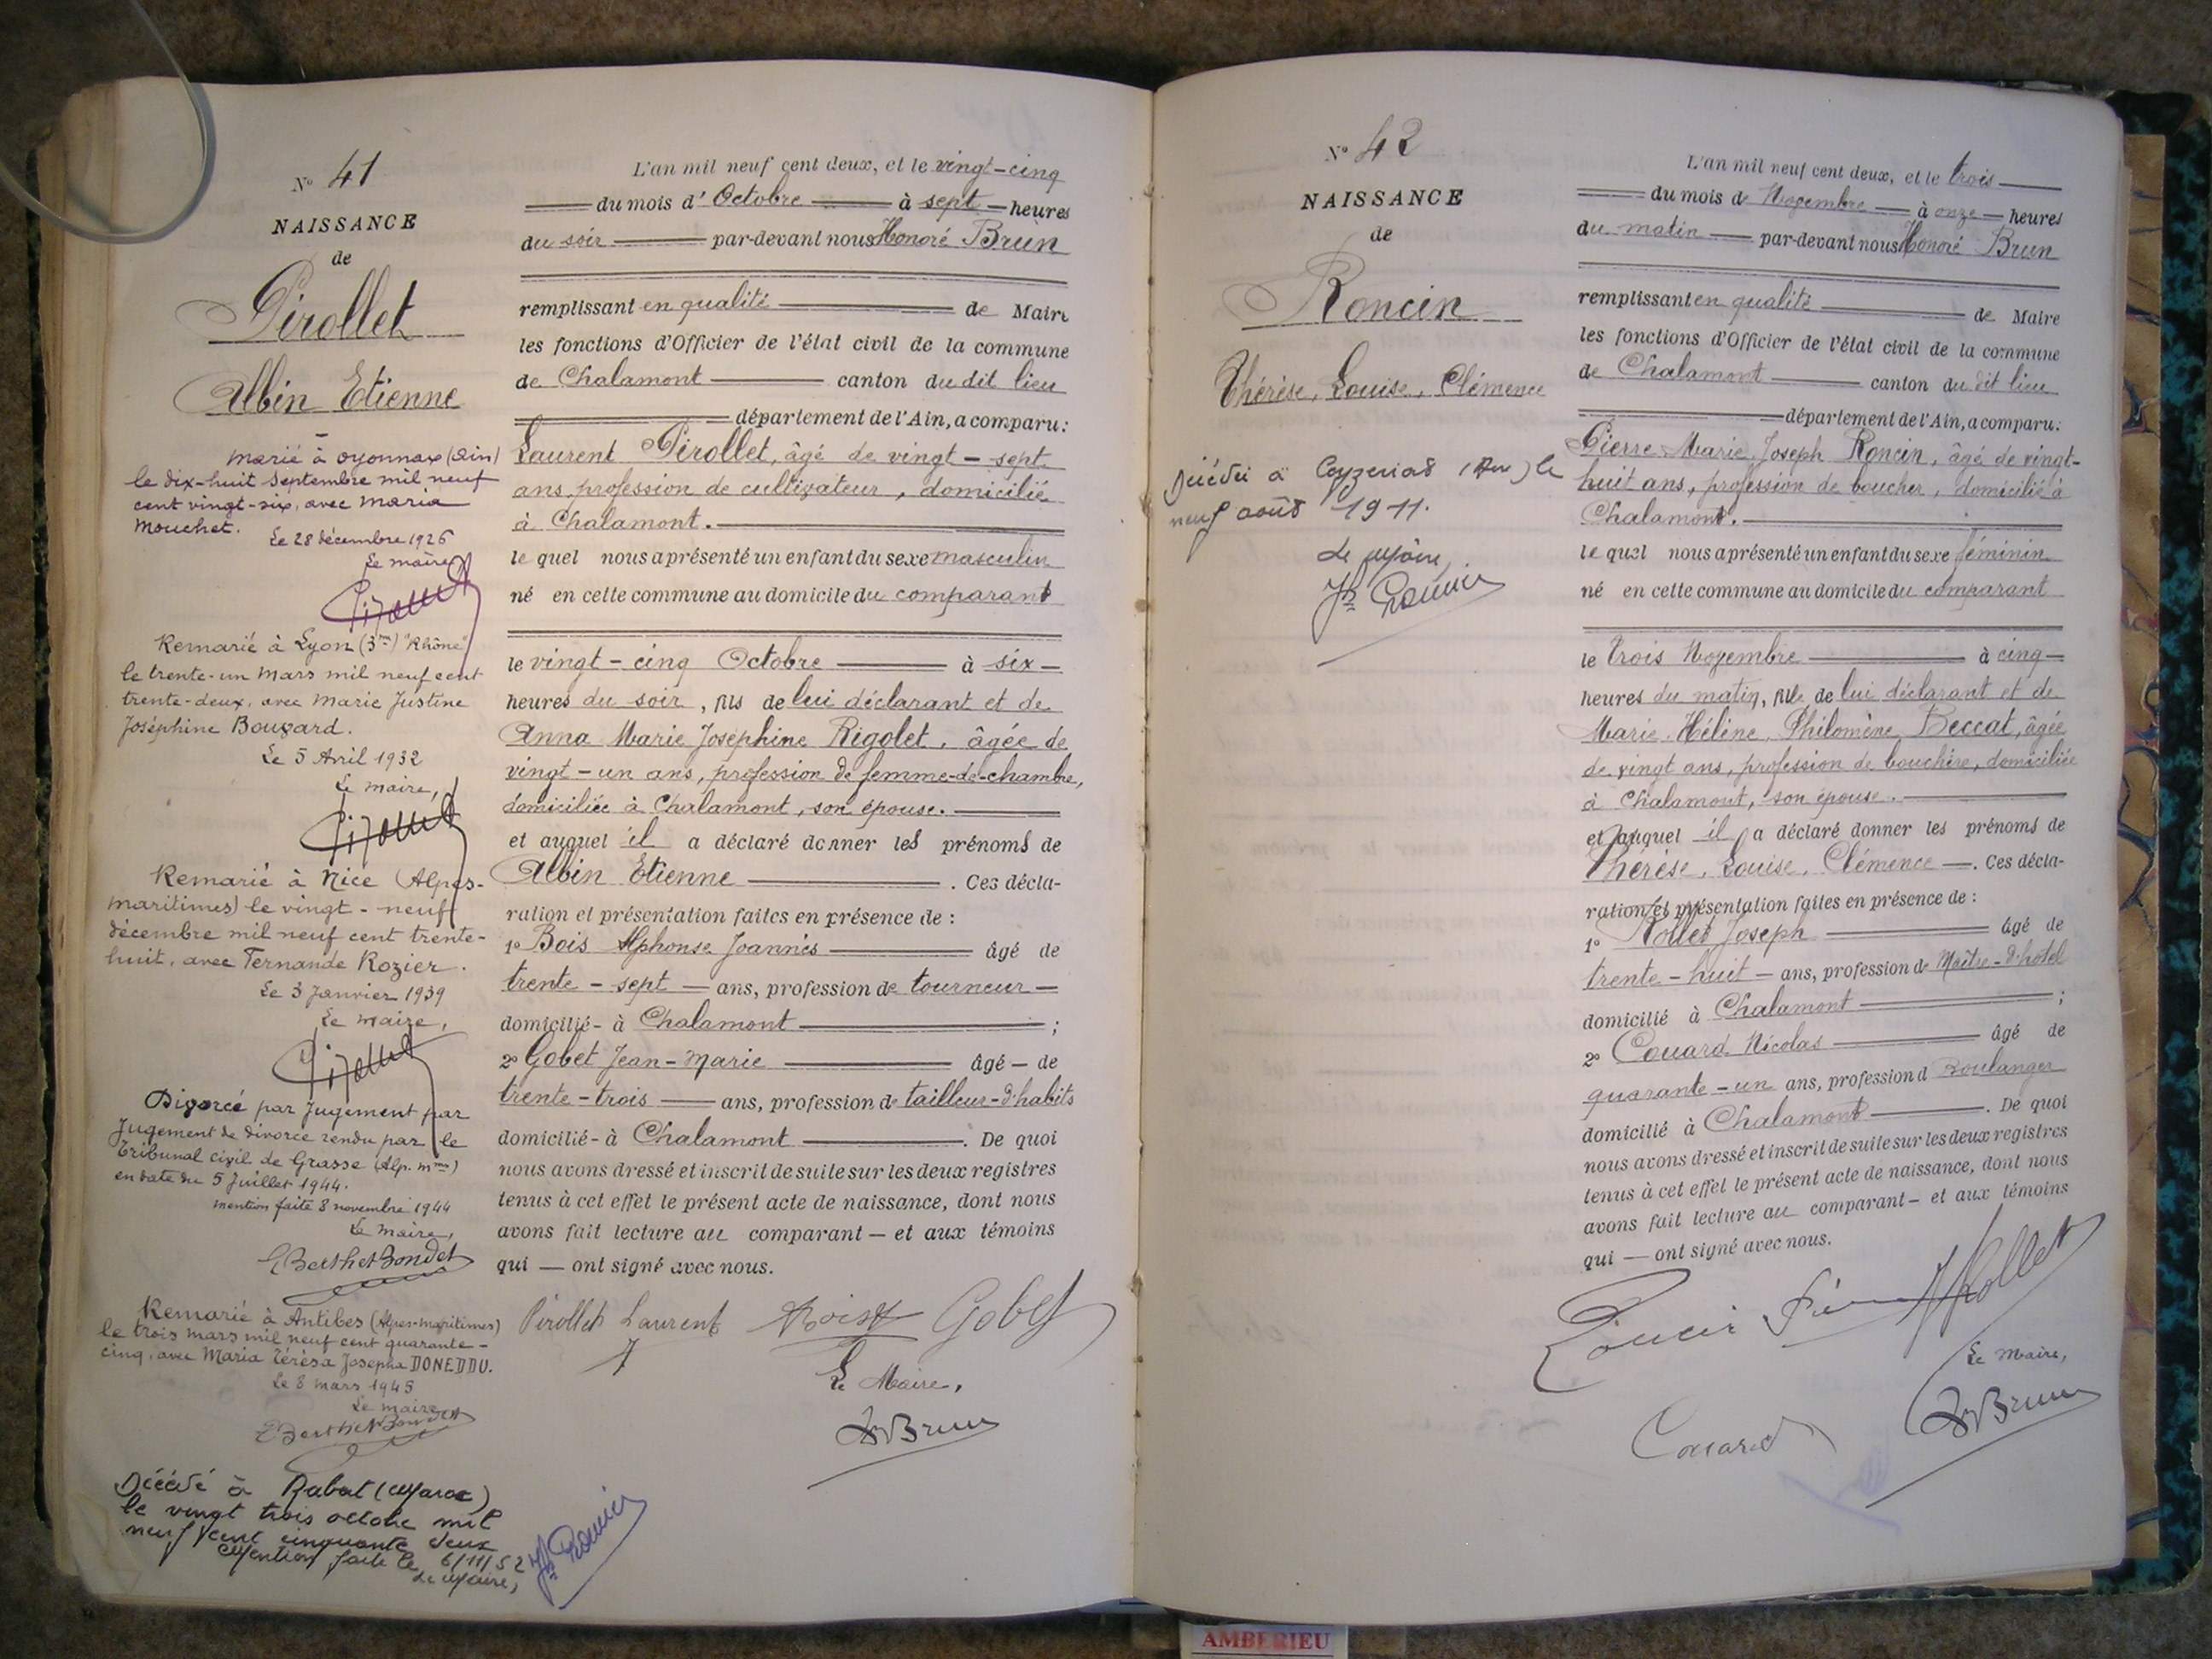 N° 41
NAISSANCE
de
Pirollet
Albin Etienne
marié à oyonnax (Ain)
le dix-huit Septembre mil neuf
cent vingt-six, avec Maria
Mouchet.
Le 28 décembre 1926
Le maire
Remarié à Lyon (3me) "Rhône"
le trente-un Mars mil neuf cent
trente-deux, avec Marie Justine
Joséphine Bouvard.
Le 5 Avril 1932
Le maire,
Remarié à Nice (Alpes-
maritimes) le vingt-neuf
décembre mil neuf cent trente-
huit, avec Fernande Rozier.
Le 3 Janvier 1939
Le maire,
Divorcé par Jugement par
Jugement de divorce rendu par le
Tribunal civil de Grasse (Alp. mmes)
en date du 5 Juillet 1944.
mention faite 8 novembre 1944
Le maire,
E BerthetBondet
Remarié à Antibes (Alpes-maritimes)
le trois mars mil neuf cent quarante-
cinq, avec Maria Térèsa Josepha DONEDDU.
Le 8 mars 1945
Le maire
E BerthetBondet
Décédé à Rabat (Maroc)
le vingt trois octobre mil
neuf cent cinquante deux
Mention faite le 6/11/52
Le Maire,
L'an mil neuf cent deux, et le vingt-cinq
du mois d' Octobre à sept heures
du soir par-devant nous Honoré Brun
remplissant en qualité de Maire
les fonctions d'Officier de l'état civil de la commune
de Chalamont canton du dit lieu
département de l'Ain, a comparu:
Laurent Pirollet, âgé de vingt-sept
ans, profession de cultivateur, domicilié
à Chalamont.
le quel nous a présenté un enfant du sexe masculin
né en cette commune au domicile du comparant
le vingt-cinq Octobre à six
heures du soir, fils de lui déclarant et de
Anna Marie Josephine Rigolet, âgée de
vingt-un ans, profession de femme-de-chambre,
domiciliée à Chalamont, son épouse.
et auquel il a déclaré donner les prénoms de
Albin Etienne. Ces décla-
ration et présentation faites en présence de :
1° Bois Alphonse Joannès âgé de
trente-sept ans, profession de tourneur
domicilié à Chalamont ;
2° Gobet Jean-Marie âgé de
trente-trois ans, profession de tailleur-d'habits
domicilié à Chalamont. De quoi
nous avons dressé et inscrit de suite sur les deux registres
tenus à cet effet le présent acte de naissance, dont nous
avons fait lecture au comparant et aux témoins
qui ont signé avec nous.
Pirollet Laurent Gobet
Le Maire,
HBrun
N° 42
NAISSANCE
de
Roncin
Thérèse, Louise, Clémence
Décédée à Ceyzeriat (Ain) le
neuf août 1911.
Le Maire,
L'an mil neuf cent deux, et le trois
du mois de Novembre à onze heures
du matin par-devant nous Honoré Brun
remplissant en qualité de Maire
les fonctions d'Officier de l'état civil de la commune
de Chalamont canton du dit lieu
département de l'Ain, a comparu:
Pierre Marie Joseph Roncin, âgé de vingt-
huit ans, profession de boucher, domicilié à
Chalamont.
le quel nous a présenté un enfant du sexe féminin
né en cette commune au domicile du comparant
le trois Novembre à cinq
heures du matin, fille de lui déclarant et de
Marie Hélène Philomène Beccat, âgée
de vingt ans, profession de bouchère, domiciliée
à Chalamont, son épouse.
et auquel il a déclaré donner les prénoms de
Thérèse, Louise, Clémence. Ces décla-
ration et présentation faites en présence de :
1° Rollet Joseph âgé de
trente-huit ans, profession de Maître-d'hotel
domicilié à Chalamont ;
2° Couard Nicolas âgé de
quarante-un ans, profession d Boulanger
domicilié à Chalamont. De quoi
nous avons dressé et inscrit de suite sur les deux registres
tenus à cet effet le présent acte de naissance, dont nous
avons fait lecture au comparant et aux témoins
qui ont signé avec nous.
JRollet
Le Maire,
Couard HBrun
AMBERIEU